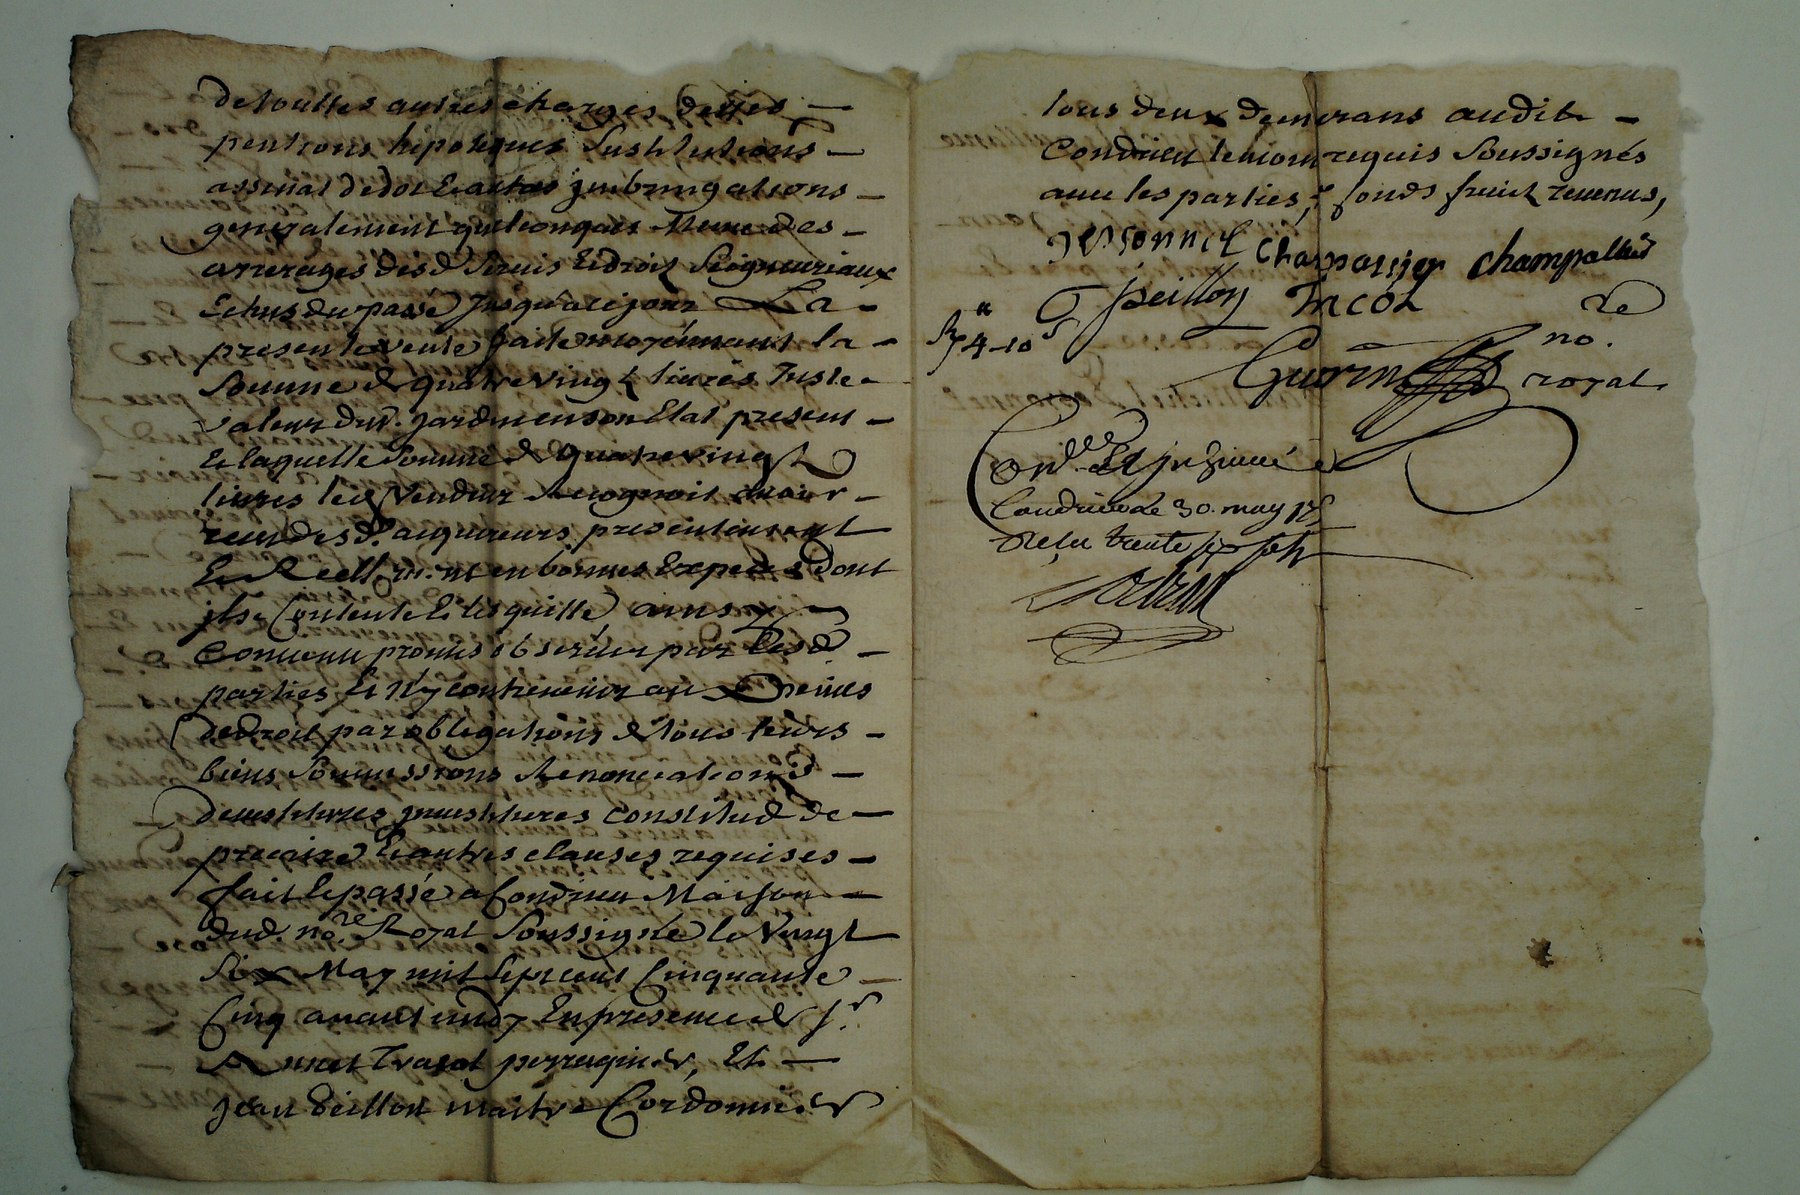 de touttes autres charges dettes
pentions hipoteques substitutions
assinat de dot et autres jmbringations
generalement quelconques meme des
arrerages desd servis et droit Seigneuriaux
Echus du passé jusqu'a ce jour La
presente vente faite moyennant la
Somme de quatre vingt livres juste
valeur dud. jardin en son Etat present
Et laquelle Somme de quatre vingt
livres led vendeur Recognoit avoir
receu desd. acquereurs presentement
Et Reellement en bonnes Especes dont
jl se Contente Et les quitte ainsy
Convenu promis observer par lesd
parties Et n'y contrevenir au
de droit par obligations de tous leurs
biens Soumissions Renonciations
devestitures jnvestitures constitué de
precaire Et autres clauses requises
fait Et passé a Condrieu Maison
dud. nore. Royal Soussigné le vingt
Six May mil sept cent Cinquante
Cinq avant midy En presence de sr.
perruquier, Et
jean Peillon maitre Cordonnier
tous deux demeurans audit
Condrieu temoins requis Soussignés
avec les parties, fonds fruict revenus,
Dessonnel Chapassier
Peillon
re
no.
Guerin royal
4-10s
Condrieu le 30. may
Reçu trente